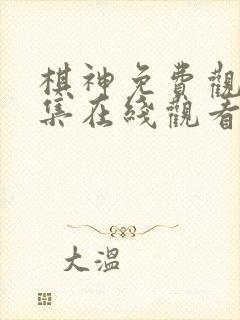 棋神免費觀
集在綫觀看
大溫